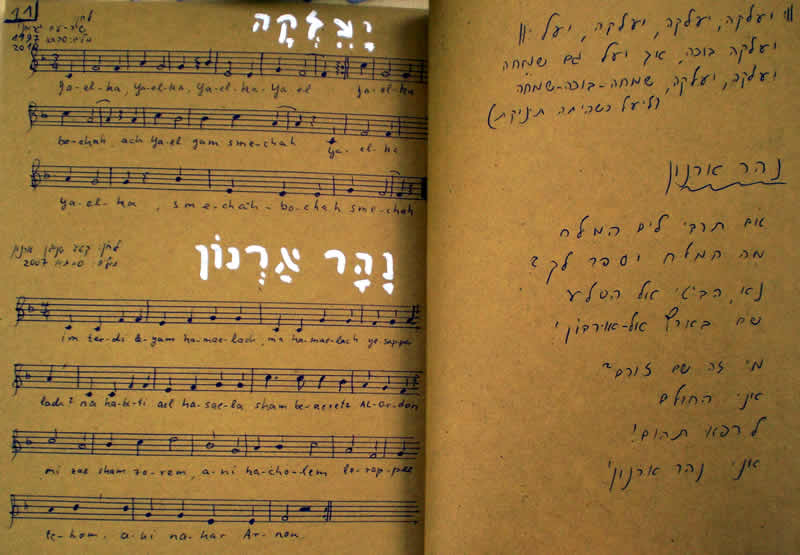 11
לחן:
1997
2010
יָעֵלְקָה
Ya-el-ka, Ya-el-ka, Ya-el-ka-Ya el Ya-el-ka
bo-chah, ach Ya-el gam sme-chah Ya-el-ka
Ya-el-ka, sme-chah-bo-chah sme-chah
לחן:
2007
נָהָר אַרְנוֹן
im ter-di le-yam ha-mae-lach, ma ha-mae-lach ye-sap-per
lach? na ha-bi-ti ael ha-sae-la sham be-aeretz Al-Or-don
mi zae sham zo-rem, a-ni ha-cho-lem le-rap-pee
te-hom. a-ni na-har Ar-non.
||: יעלקה, יעלקה, יעלקה, יעל :||
יעלקה בוכה, אך יעל גם שמחה
יעלקה, יעלקה, שמחה-בוכה-שמחה
(ליעל כשהיתה תינוקת)
נהר ארנון
אם תרדי לים המלח
מה המלח יספר לך?
נא, הביטי אל הסלע
שם בארץ אל-אורדון
מי זה שם זורם?
אני החולם
לרפא תהום!
אני נהר ארנון!